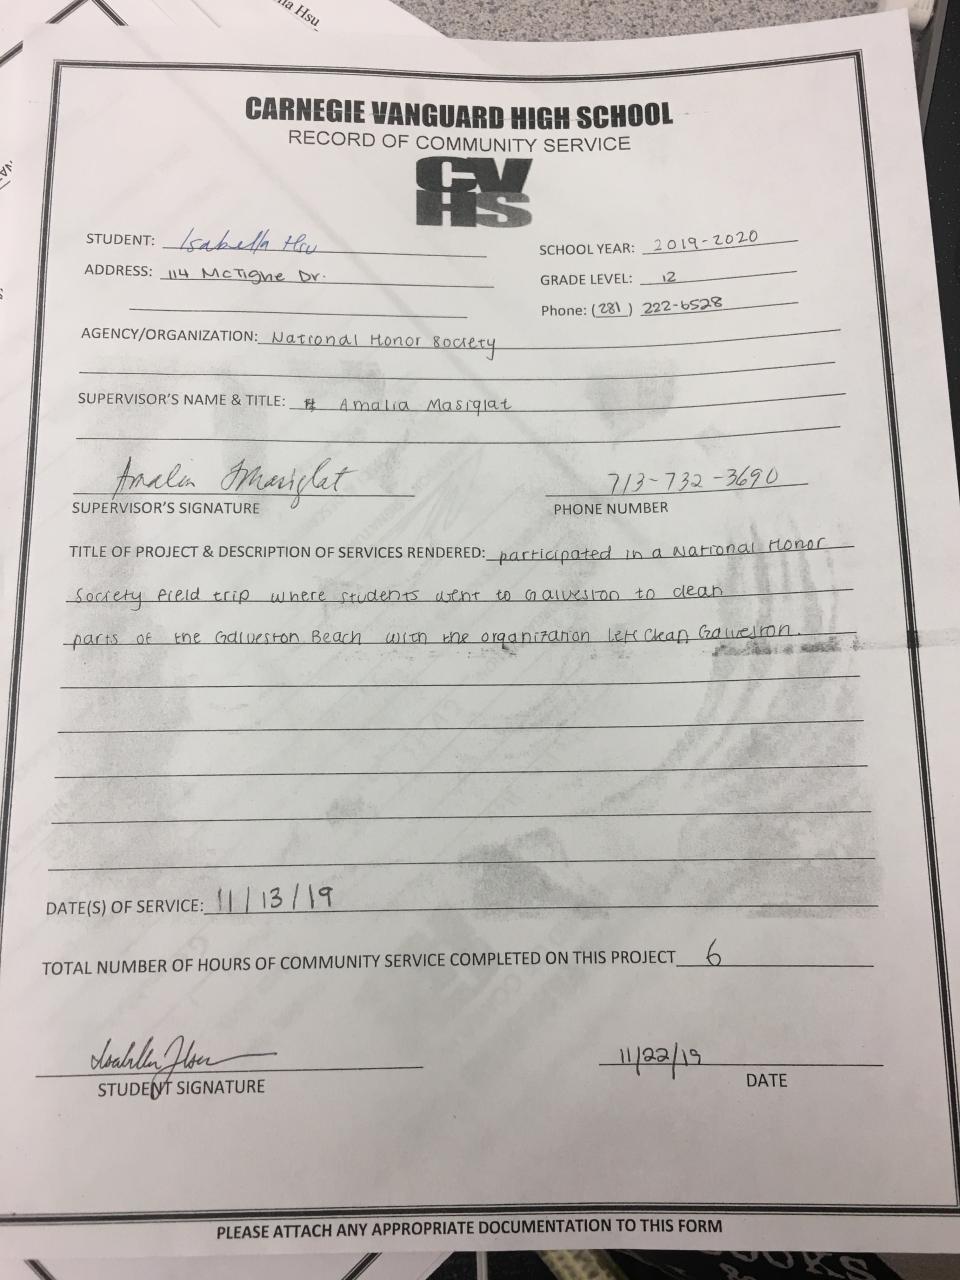 na Hsu
CARNEGIE VANGUARD HIGH SCHOOL
RECORD OF COMMUNITY SERVICE
CV
HS
STUDENT: Isabella Hsu
SCHOOL YEAR: 2019-2020
ADDRESS: 114 McTighe Dr.
GRADE LEVEL: 12
Phone: (281) 222-6528
AGENCY/ORGANIZATION: National Honor Society
SUPERVISOR'S NAME & TITLE: Amalia Masiglat
Amalia Masiglat 713-732-3690
SUPERVISOR'S SIGNATURE PHONE NUMBER
TITLE OF PROJECT & DESCRIPTION OF SERVICES RENDERED: participated in a National Honor
Society field trip where students went to Galveston to clean
parts of the Galveston Beach with the organization Lets Clean Galveston.
DATE(S) OF SERVICE: 11/13/19
TOTAL NUMBER OF HOURS OF COMMUNITY SERVICE COMPLETED ON THIS PROJECT 6
Isabella Hsu 11/22/19
STUDENT SIGNATURE DATE
PLEASE ATTACH ANY APPROPRIATE DOCUMENTATION TO THIS FORM